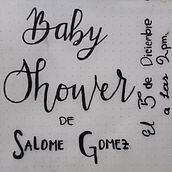 Baby
Shower
DE
SALOME GOMEZ
El 5 de Diciembre
a las 2pm.